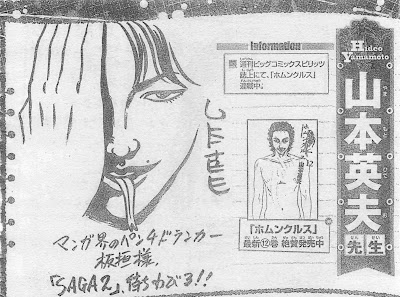 Hideo
Yamamoto
山本英夫
やまもとひでお
先生
せんせい
Information
週刊ビッグコミックスピリッツ
誌上にて、『ホムンクルス』
連載中。
12
『ホムンクルス』
最新⑫巻 絶賛発売中
マンガ界のパンチドランカー
板垣様、
「SAGA2」、待ちわびる!!